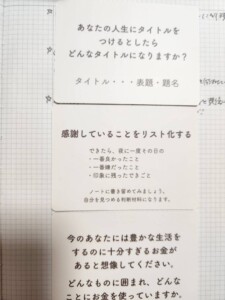 あなたの人生にタイトルを
つけるとしたら
どんなタイトルになりますか?
タイトル・・・表題・題名
感謝していることをリスト化する
できたら、夜に一度その日の
・一番良かったこと
・一番嫌だったこと
・印象に残ったできごと
ノートに書き留めてみましょう。
自分を見つめる判断材料になります。
今のあなたには豊かな生活を
するのに十分すぎるお金が
あると想像してください。
どんなものに囲まれ、どんな
ことにお金を使っていますか。